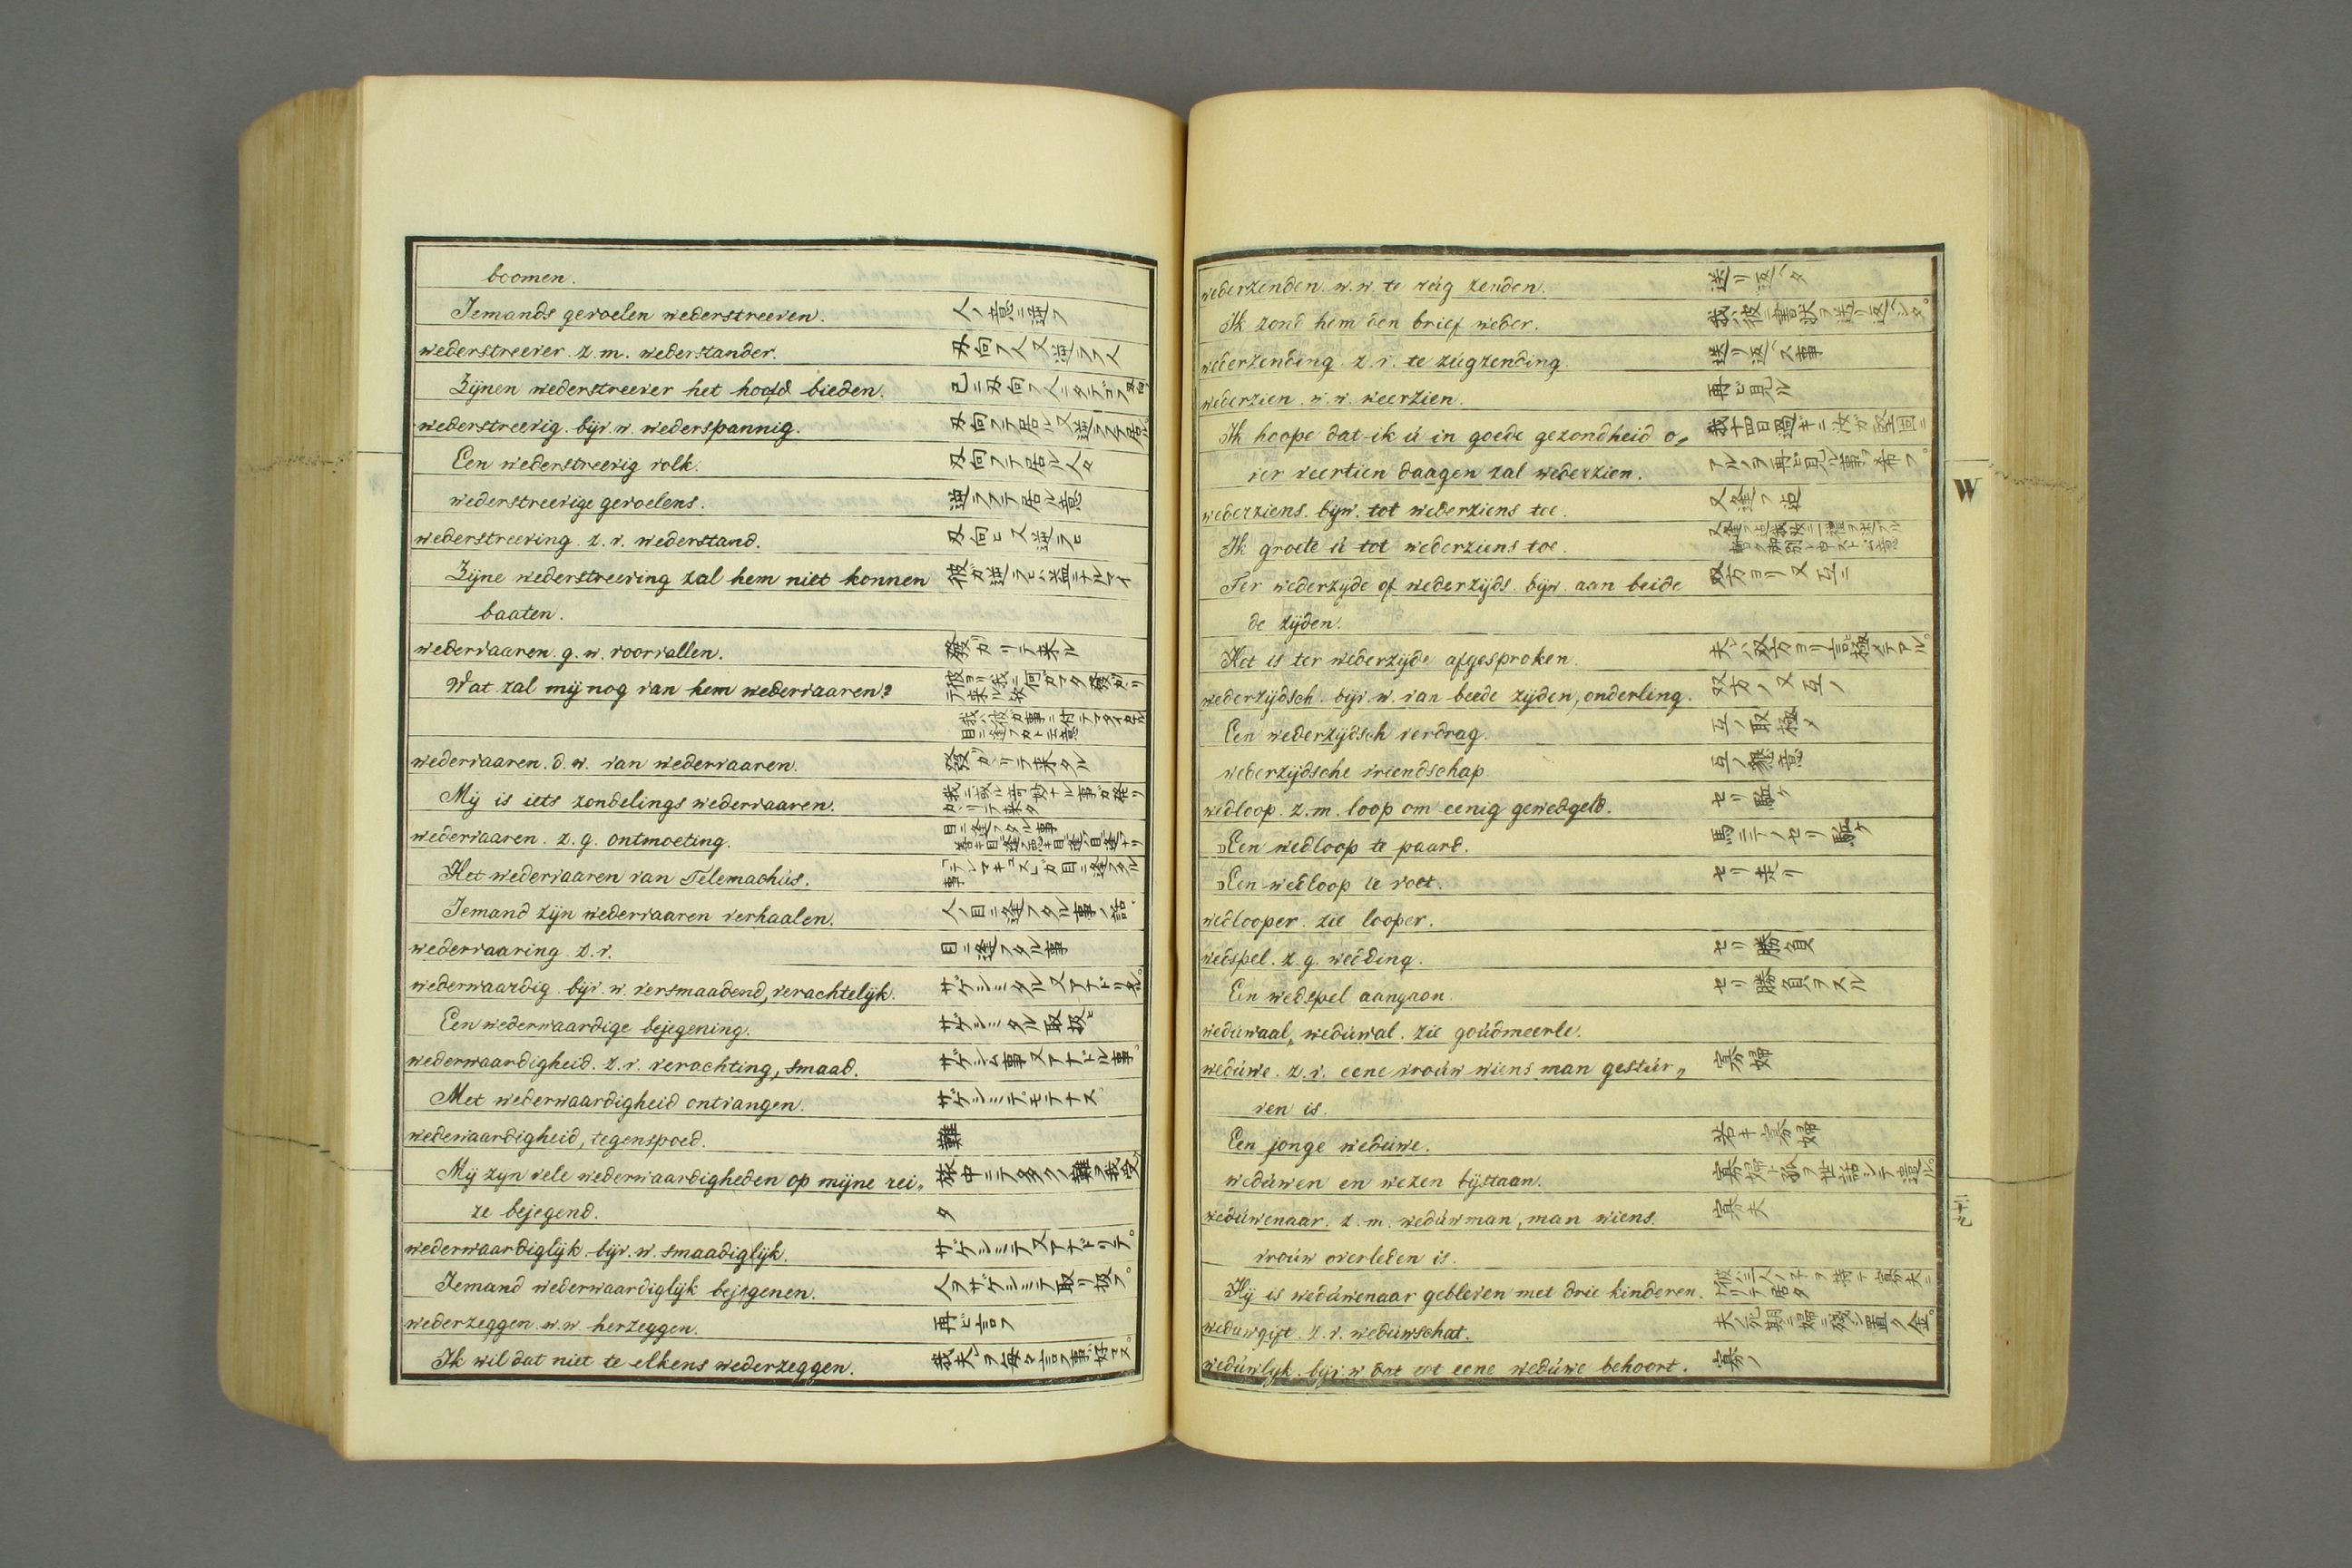 boomen.
Iemands gevoelen wederstreeven. 人ノ意ニ逆フ
wederstreever. z.m. wederstander. 刄向フ人又逆ラフ人
Zijnen wederstreever het hoofd bieden.
wederstreevig. bijv. w. wederspannig. 刄向フテ居ル又逆ラフテ居ル
Een wederstreevig volk. 刄向フテ居ル人々
wederstreevige gevoelens. 逆ラフテ居ル意
wederstreeving. z.v. wederstand. 刄向ヒ又逆ラヒ
Zijne wederstreeving zal hem niet konnen
baaten.
wedervaaren. g.w. voorvallen. 發ガリテ来ル
Wat zal mij nog van hem wedervaaren?
wedervaaren. d.w. van wedervaaren. 發ガリテ来タル
Mij is iets zondelings wedervaaren.
wedervaaren. z.g. ontmoeting. 目ニ逢フタル事
Het wedervaaren van Telemachús.
Iemand zijn wedervaaren verhaalen. 人ノ目ニ逢フタル事ノ話
wedervaaring. z.v. 目ニ逢フタル事
wederwaardig. bijv. w. versmaadend, verachtelijk.
Een wederwaardige bejegening. サゲシミタル取扱ヒ
wederwaardigheid. z.v. verachting, smaad. サゲシム事又アナドル事
Met wederwaardigheid ontvangen. サゲシミデモテナス
wederwaardigheid, tegenspoed. 難
Mij zijn vele wederwaardigheden op mijne rei„ 旅中ニテ多クノ難ヲ我受
ze bejegend. タ
wederwaardiglijk. bijv. w. smaadiglijk. サゲシミテ又アナドリテ。
Iemand wederwaardiglijk bejegenen. 人ヲサゲシミテ取リ扱フ。
wederzeggen. w.w. herzeggen. 再ビ言フ
Ik wil dat niet te elkens wederzeggen.
wederzenden. w.w. te rúg zenden. 送リ返ヘス
Ik zond hem den brief weder. 我レ彼ニ書状ヲ送リ返ヘシタ。
wederzending. z.v. te rúgzending. 送リ返ヘス事
wederzien. w.w. weerzien. 再ビ見ル
Ik hoope dat ik ú in goede gezondheid o„
ver veertien daagen zal wederzien.
wederziens. bijw. tot wederziens toe. 又逢フ迄
Ik groete ú tot wederziens toe.
Ter wederzijde of wederzijds. bijw. aan beide 双方ヨリ又互ニ
de zijden.
Het is ter wederzijde afgesproken. 夫レハ双方ヨリ言極メテアル。
wederzijdsch. bijv. w. van beede zijden, onderling. 双方ノ又互ノ
Een wederzijdsch verdrag. 互ノ取極メ
wederzijdsche vriendschap. 互ノ懇意
wedloop. z.m. loop om eenig gewedgeld. セリ駈ケ
Een wedloop te paard. 馬ニテノセリ駈ケ
Een wedloop te voet. セリ走リ
wedlooper. zie looper.
wedspel. z.g. wedding. セリ勝負
Een wedspel aangaan. セリ勝負ヲスル
wedúwaal, wedúwal. zie goúdmeerle.
wedúwe. z.v. eene vroúw wiens man gestúr„ 寡婦
ven is.
Een jonge wedúwe. 若キ寡婦
wedúwen en wezen bijstaan.
wedúwenaar. z.m. wedúwman, man wiens 寡夫
vroúw overleden is.
Hij is wedúwenaar gebleven met drie kinderen. 彼ハ三人ノ子ヲ持テ寡夫ニナリテ居タ
wedúwgift. z.v. wedúwschat.
wedúwlijk. bijv. w dat tot eene wedúwe behoort. 寡ノ
W